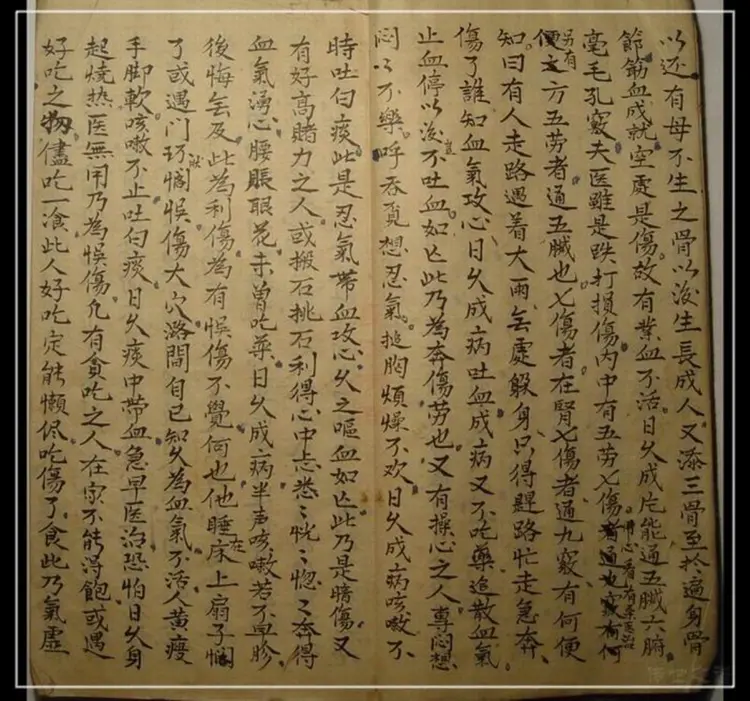 以还有母不生之骨以後生長成人又添三骨至於遍身骨
節筋血成就空處是傷故有業血不活日久成片能通五臟六腑
毫毛孔竅夫医雖是跌打損傷内中有五劳七傷
便之方五劳者通五臟也七傷者在腎七傷者通九竅有何便
另有
知曰有人走路遇着大雨無處躲身只得趕路忙走急奔
傷了誰知血氣攻心日久成病吐血成病又不吃藥追散血氣
止血停以後不吐血如亡此乃為奔傷劳也又有操心之人專闷想
闷以不樂呼吞覓想忍氣搥胸煩燥不欢日久成病咳嗽不
時吐白痰此是忍氣帶血攻心久之嘔血如亡此乃是暗傷又
有好高賭力之人或搬石挑石利得心中忐忑恍〻惚〻奔得
血氣湧心腰脹眼花未曾吃藥日久成病半声咳嗽若不早胗
後悔無及此為利傷為有悮傷不覺何也他睡在床上扇子
了或遇門巧悮傷大穴路間自已知久為血氣不活人黄瘦
手脚軟咳嗽不止吐白痰日久痰中帶血急早医治恐怕日久身
起燒热医無用乃為悮傷凢有貪吃之人在家不能得飽或遇
好吃之物儘吃一飡此人好吃定能懶侭吃傷了食此乃氣虚